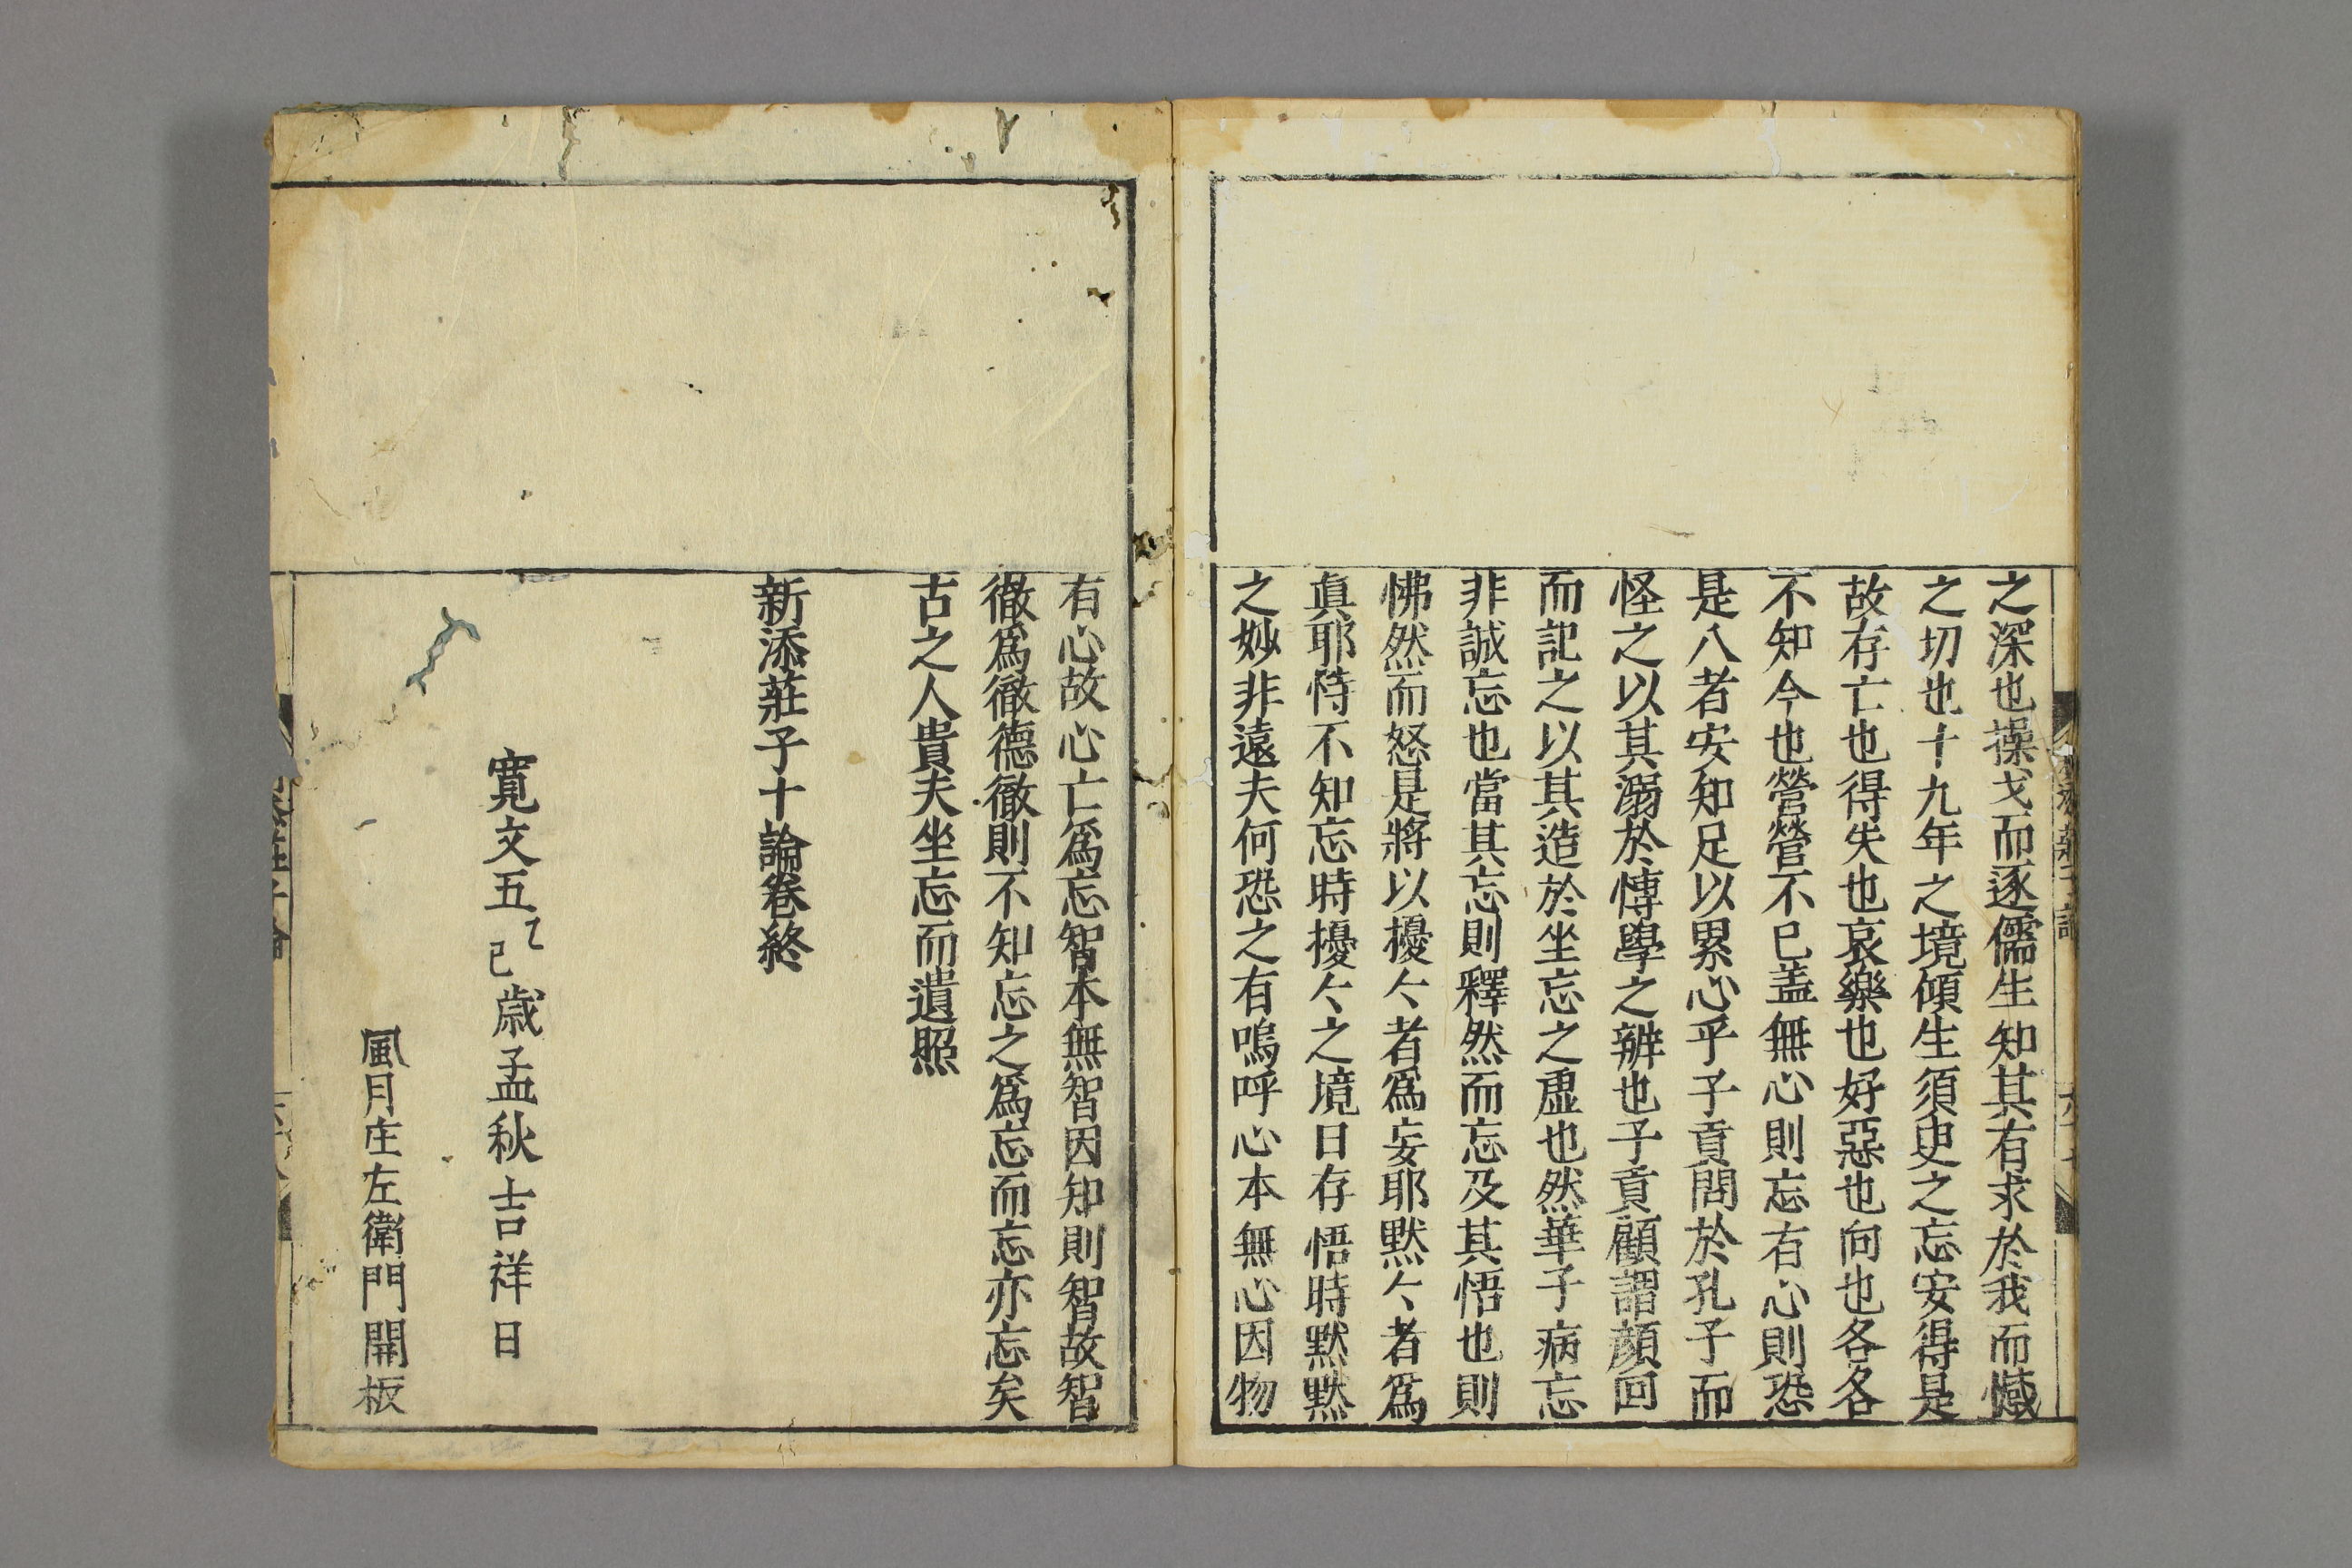 之深也操戈而逐儒生知其有求於我而憾
之切也十九年之境傾生須臾之忘安得是
故存亡也得失也哀樂也好惡也向也各各
不知今也營營不已盖無心則忘有心則恐
是八者安知足以累心乎子貢問於孔子而
怪之以其溺於博學之辨也子貢顧謂顔回
而記之以其造於坐忘之虛也然華子病忘
非誠忘也當其忘則釋然而忘及其悟也則
怫然而怒是將以擾〻者爲妄耶默〻者爲
眞耶恃不知忘時擾〻之境日存悟時默默
之妙非遠夫何恐之有嗚呼心本無心因物
有心故心亡爲忘智本無智因知則智故智
徹爲徹德徹則不知忘之爲忘而忘亦忘矣
古之人貴夫坐忘而遺照
新添莊子十論卷終
寛文五乙巳歳孟秋吉祥日
風月庄左衛門開板